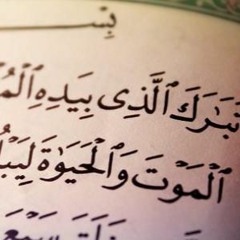 بِسۡ
تَبَٰرَكَ ٱلَّذِى بِيَدِهِ ٱلۡمُ
ٱلۡمَوۡتَ وَٱلۡحَيَوٰةَ لِيَبۡلُ